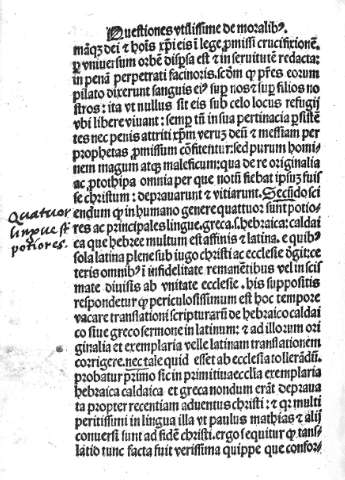 Questiones vtilissime de moralibꝰ.
mãqꝫ dei & hoĩs xp̃i eis ĩ lege ꝓmissi crucifixionẽ.
ꝑ vniuersum orbẽ disꝑsa est & in seruitutẽ redacta:
in penã perpetrati facinoris. scd̃m ꝙ pr̃es eorum
pilato dixerunt sanguis eiꝰ suꝑ nos & suꝑ filios no
stros: ita vt nullus sit eis sub celo locus refugij
vbi libere viuant: semꝑ tñ in sua pertinacia ꝑsistẽ
tes nec penis attriti xp̃m verũ deũ & messiam per
prophetas ꝓmissum cõfitent̃: sed purum homi
nem magum atqꝫ maleficum: qua de re originalia
ac ꝓtothipa omnia per que notũ fiebat ipsuꝫ fuis
se christum: deprauarunt & vitiarunt. Secũdo sci
endum ꝙ in humano genere quattuor sunt potio-
res ac principales lingue. greca. s. hebraica: caldai
ca que hebree multum est affinis & latina. e quibꝰ
sola latina plene sub iugo christi ac ecclesie dg̃it: ce
teris omnibꝰ ĩ infidelitate remanẽtibus vel in scis
mate diuisis ab vnitate ecclesie. his suppositis
respondetur ꝙ periculosissimum est hoc tempore
vacare translationi scripturarũ de hebraico caldai
co siue greco sermone in latinum: & ad illorum ori
ginalia et exemplaria velle latinam translationem
corrigere. nec tale quid esset ab ecclesia tollerãdũ.
probatur primo sic in primitiua ecclia exemplaria
hebraica caldaica et greca nondum erãt depraua
ta propter recentiam aduentus christi: & qꝛ multi
peritissimi in lingua illa vt paulus mathias & alij
conuersi sunt ad fidẽ christi. ergo sequitur ꝙ tans-
latio tunc facta fuit verissima quippe que consor-
Quatuor
linguę st̃
potiores.